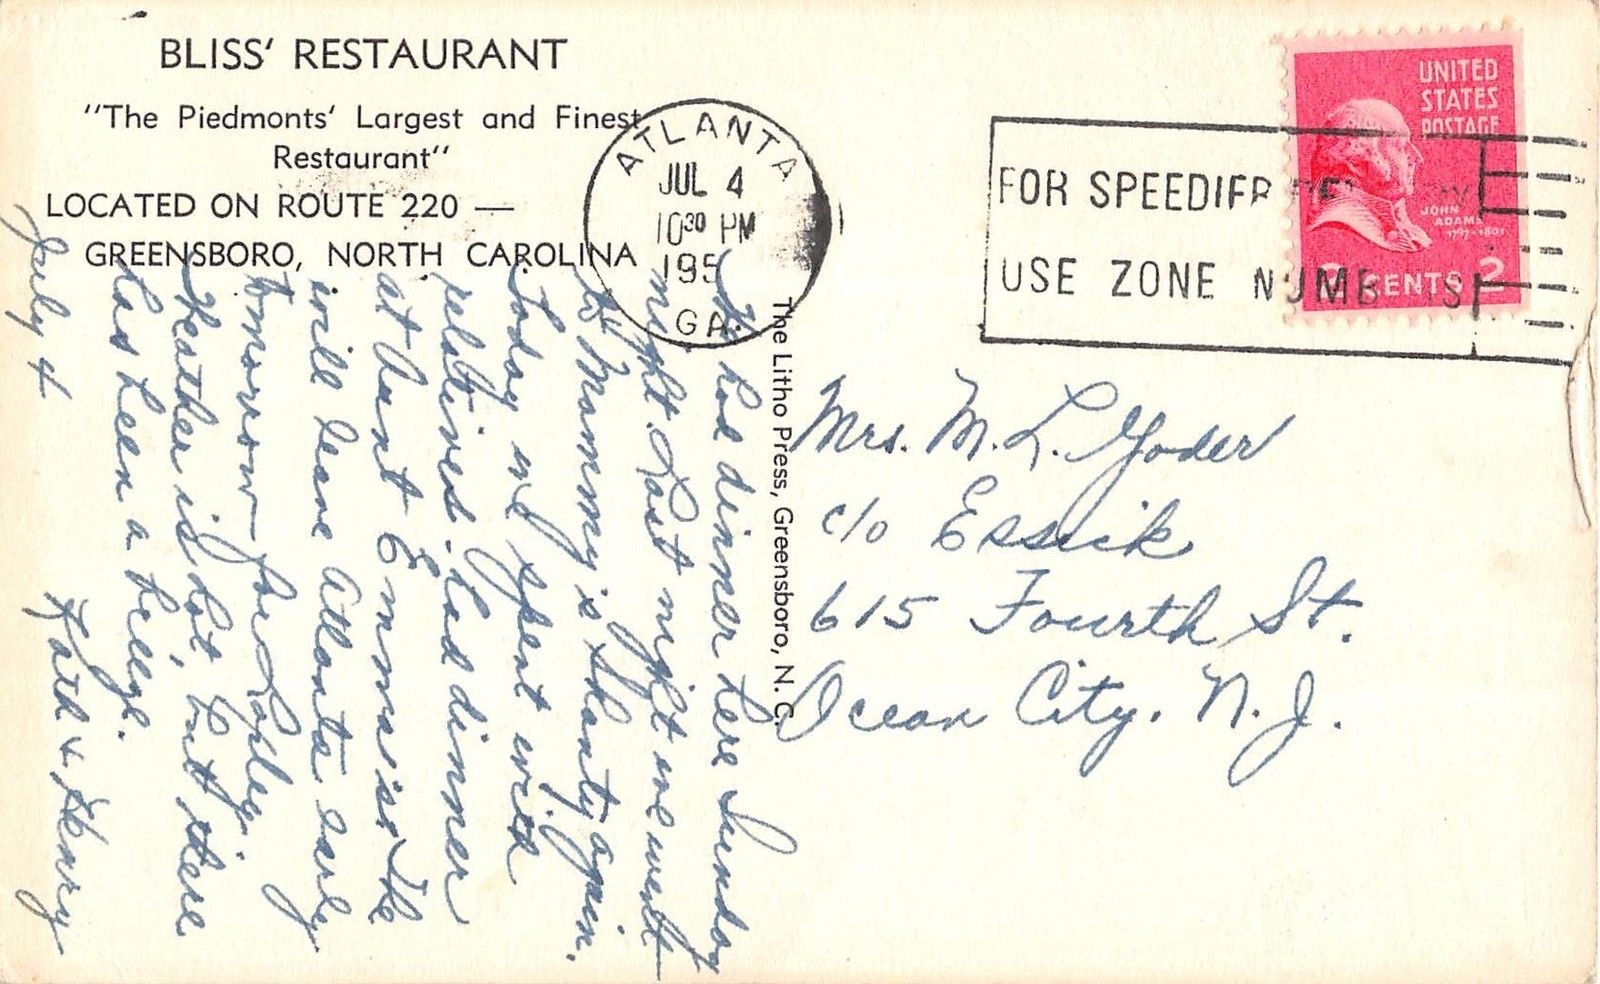 BLISS' RESTAURANT
"The Piedmonts' Largest and Finest
Restaurant"
LOCATED ON ROUTE 220 —
GREENSBORO, NORTH CAROLINA
ATLANTA
JUL 4
10 30 PM
195
GA.
FOR SPEEDIER
USE ZONE NUMB
UNITED
STATES
POSTAGE
JOHN
ADAMS
1797-1801
2 CENTS 2
The Litho Press, Greensboro, N. C.
July 4
We had dinner here Sunday
night. Last night we went
to Mammy's Shanty again.
Today we spent with
relatives. Had dinner
at Aunt Emma's. We
will leave Atlanta early
tomorrow for
Weather is hot, but there
has been a breeze.
Kath & Henry
Mrs. M. L. Yoder
c/o Essick
615 Fourth St.
Ocean City, N. J.